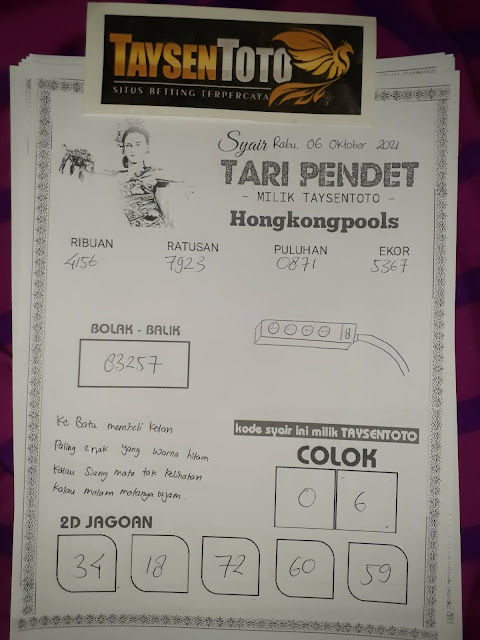 TAYSENTOTO
SITUS BETTING TERPERCAYA
Syair Rabu, 06 Oktober 2021
TARI PENDET
- MILIK TAYSENTOTO -
Hongkongpools
RIBUAN RATUSAN PULUHAN EKOR
4156 7923 0871 5367
BOLAK - BALIK
83257
Ke Batu membeli ketan
Paling enak yang warna hitam
Kalau Siang mata tak kelihatan
Kalau malam matanya tajam.
kode syair ini milik TAYSENTOTO
COLOK
0 6
2D JAGOAN
34 18 72 60 59